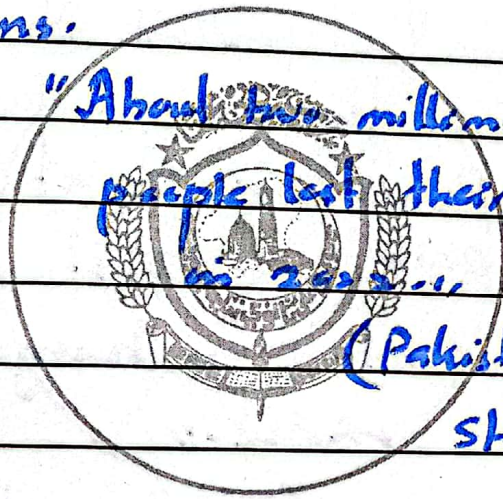 ns.
"About two million
people lost their
in 2022..."
(Pakist
St